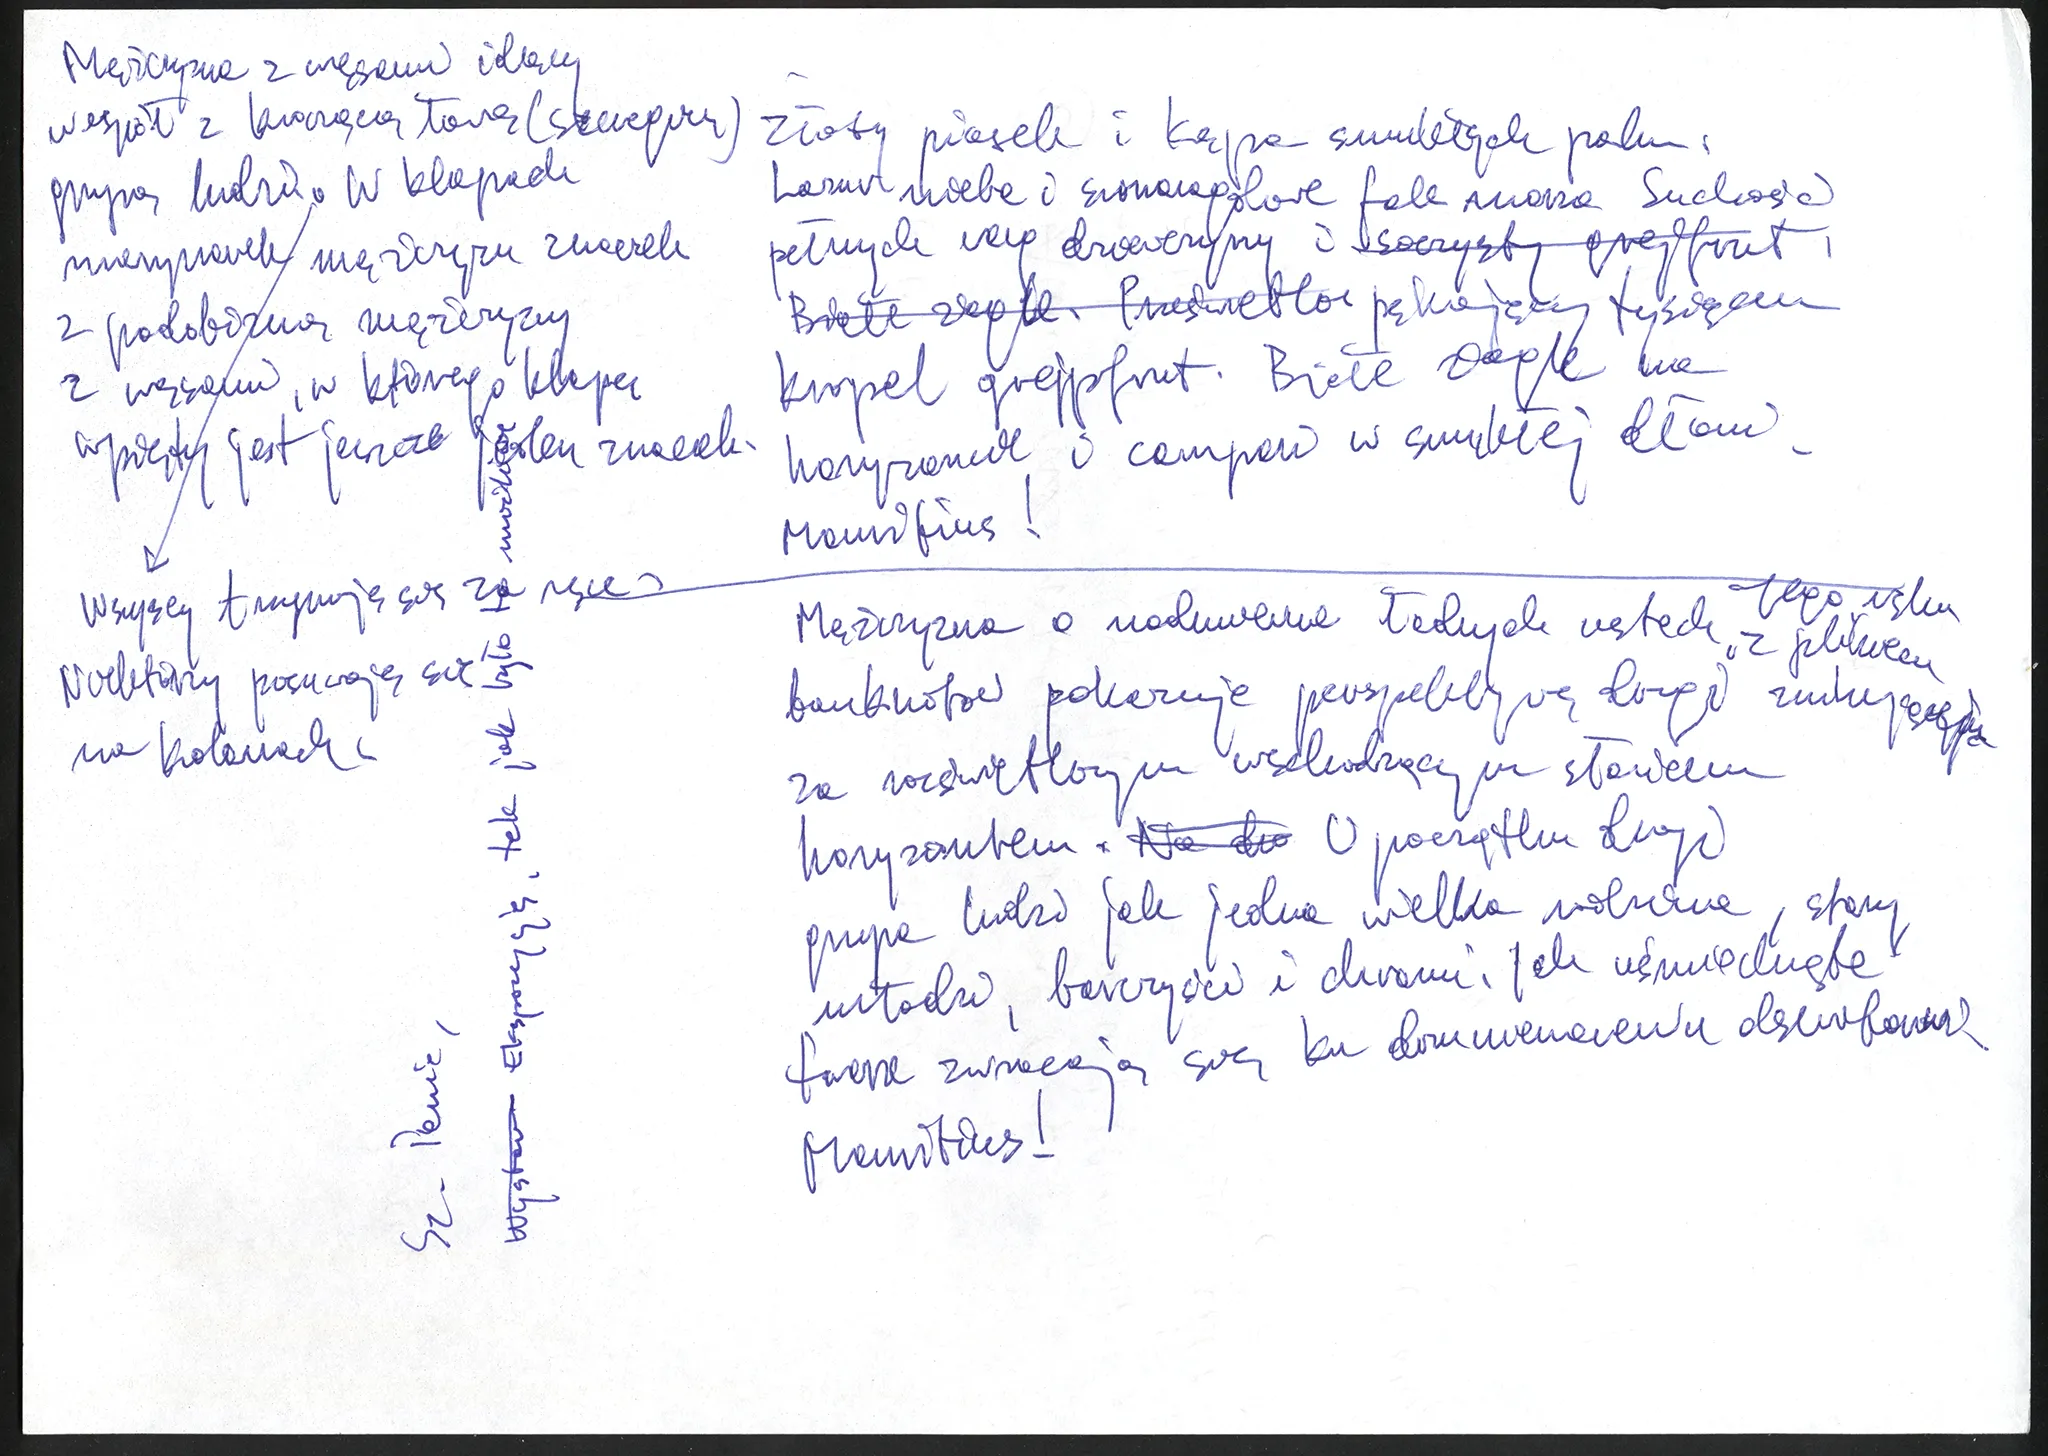 Mężczyzna z wąsami idący
wespół z kroczącą ławą (szeregiem)
grupą ludzi. W klapach
marynarek mężczyzn znaczek
z podobizną mężczyzny
z wąsami, w którego klapę
wpięty jest jeszcze jeden znaczek.
Wszyscy trzymają się za ręce.
Niektórzy posuwają się
na kolanach.
Sz. Panie,
Wystaw Eksponuję, tak jak było to możliwe
Złoty piasek i kępa smukłych palm.
Lazur nieba i szmaragdowe fale morza Suchość
pełnych warg dziewczyny i soczysty grejfrut i
Białe żagle. Prześwietlone pękający tysiącem
kropel grejpfrut. Białe żagle na
horyzoncie i campari w smukłej dłoni.
Mauritius!
Mężczyzna o nadmiernie ładnych ustach, Jego ręka
z plikiem
banknotów pokazuje perspektywę drogi znikającej
za rozświetlonym wschodzącym słońcem
horyzontem. Na dro U początku drogi
grupa ludzi jak jedna wielka rodzina, starzy
młodzi, barczyści i chromi. Ich uśmiechnięte
twarze zwracają się ku
Mauritius!